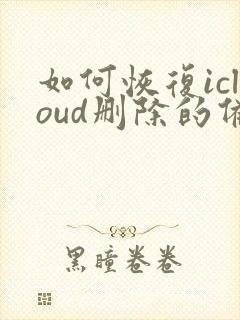 如何恢復icl
oud删除的備
黑瞳卷卷